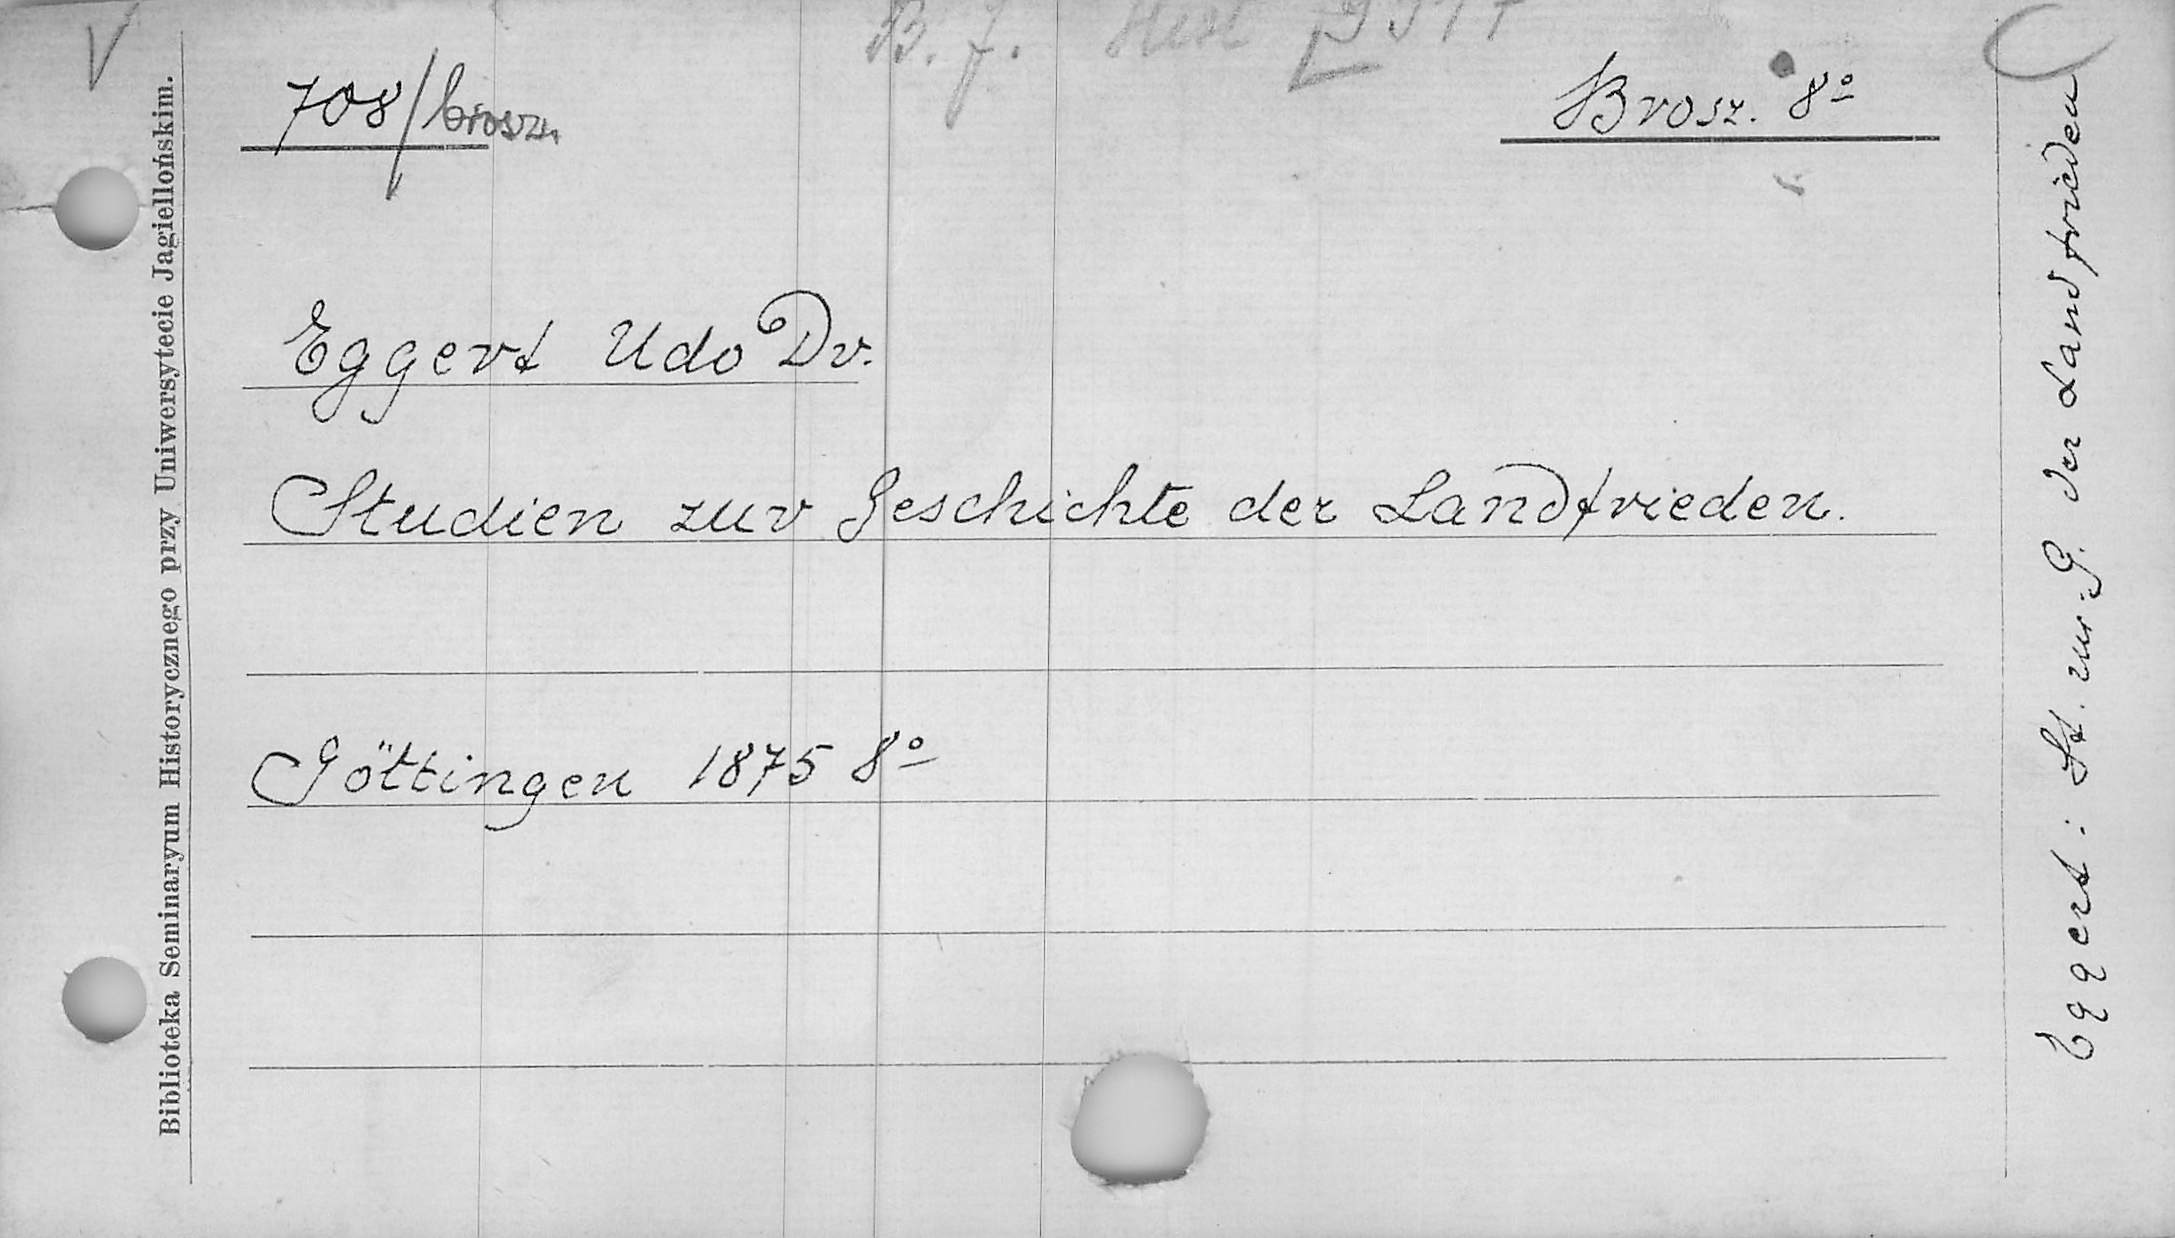 B. J. Hist
708/brosz.
Brosz. 8º
Eggert Udo Dr.
Studien zur Geschichte der Landfrieden.
Göttingen 1875 8º
Biblioteka Seminaryum Historycznego przy Uniwersytecie Jagiellońskim.
Eggert: St. zur G. der Landfrieden